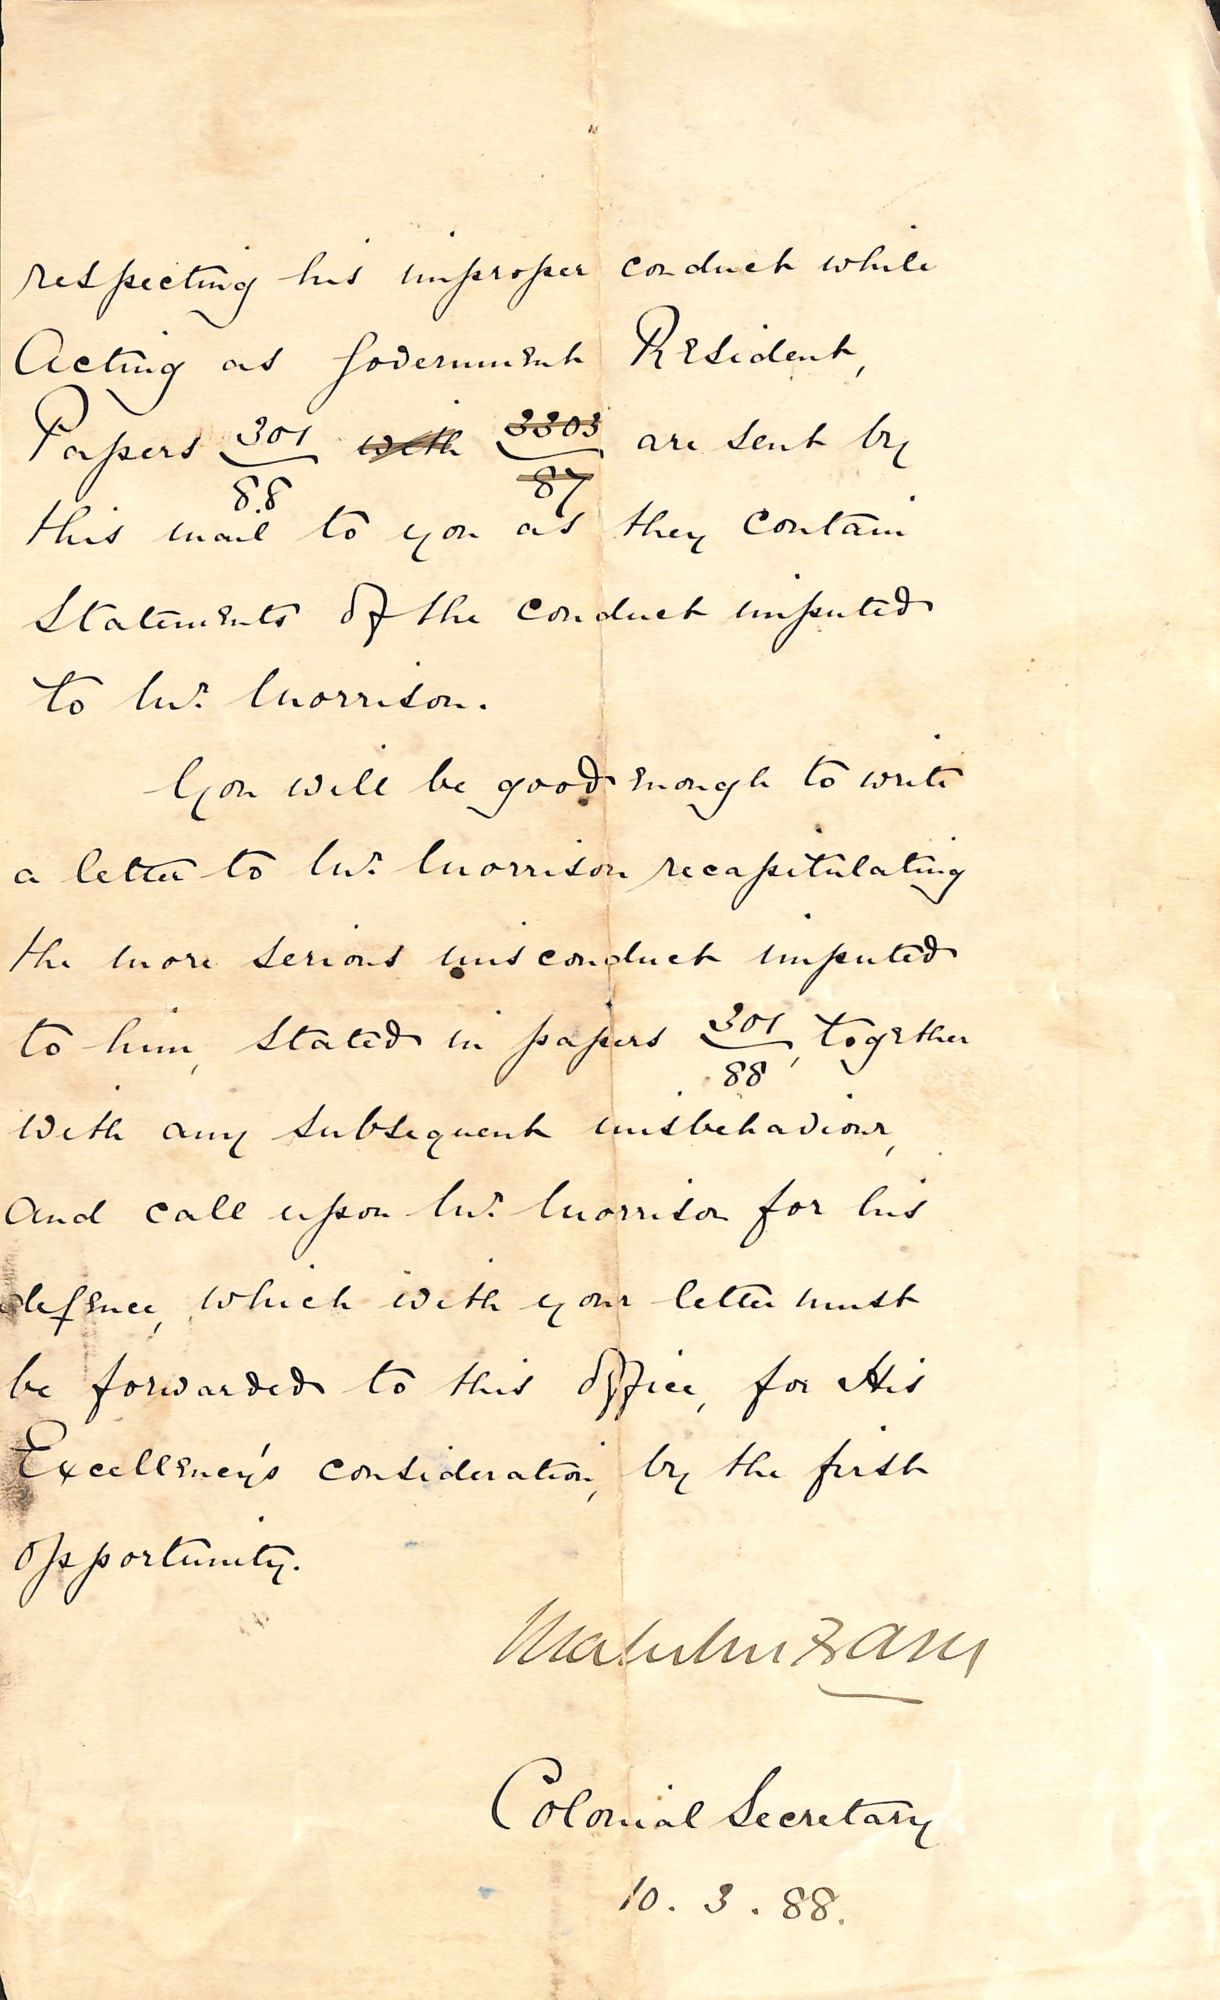 respecting his improper conduct while
Acting as Government Resident,
Papers 301/88 with 3303/87 are sent by
this mail to you as they contain
Statements of the conduct imputed
to Mr. Morrison.
You will be good enough to write
a letter to Mr. Morrison recapitulating
the more serious misconduct imputed
to him, stated in papers 301/88, together
with any subsequent misbehaviour,
and call upon Mr. Morrison for his
defence, which with your letter must
be forwarded to this Office, for His
Excellency's consideration, by the first
opportunity.
Malcolm Fraser
Colonial Secretary
10.3.88.